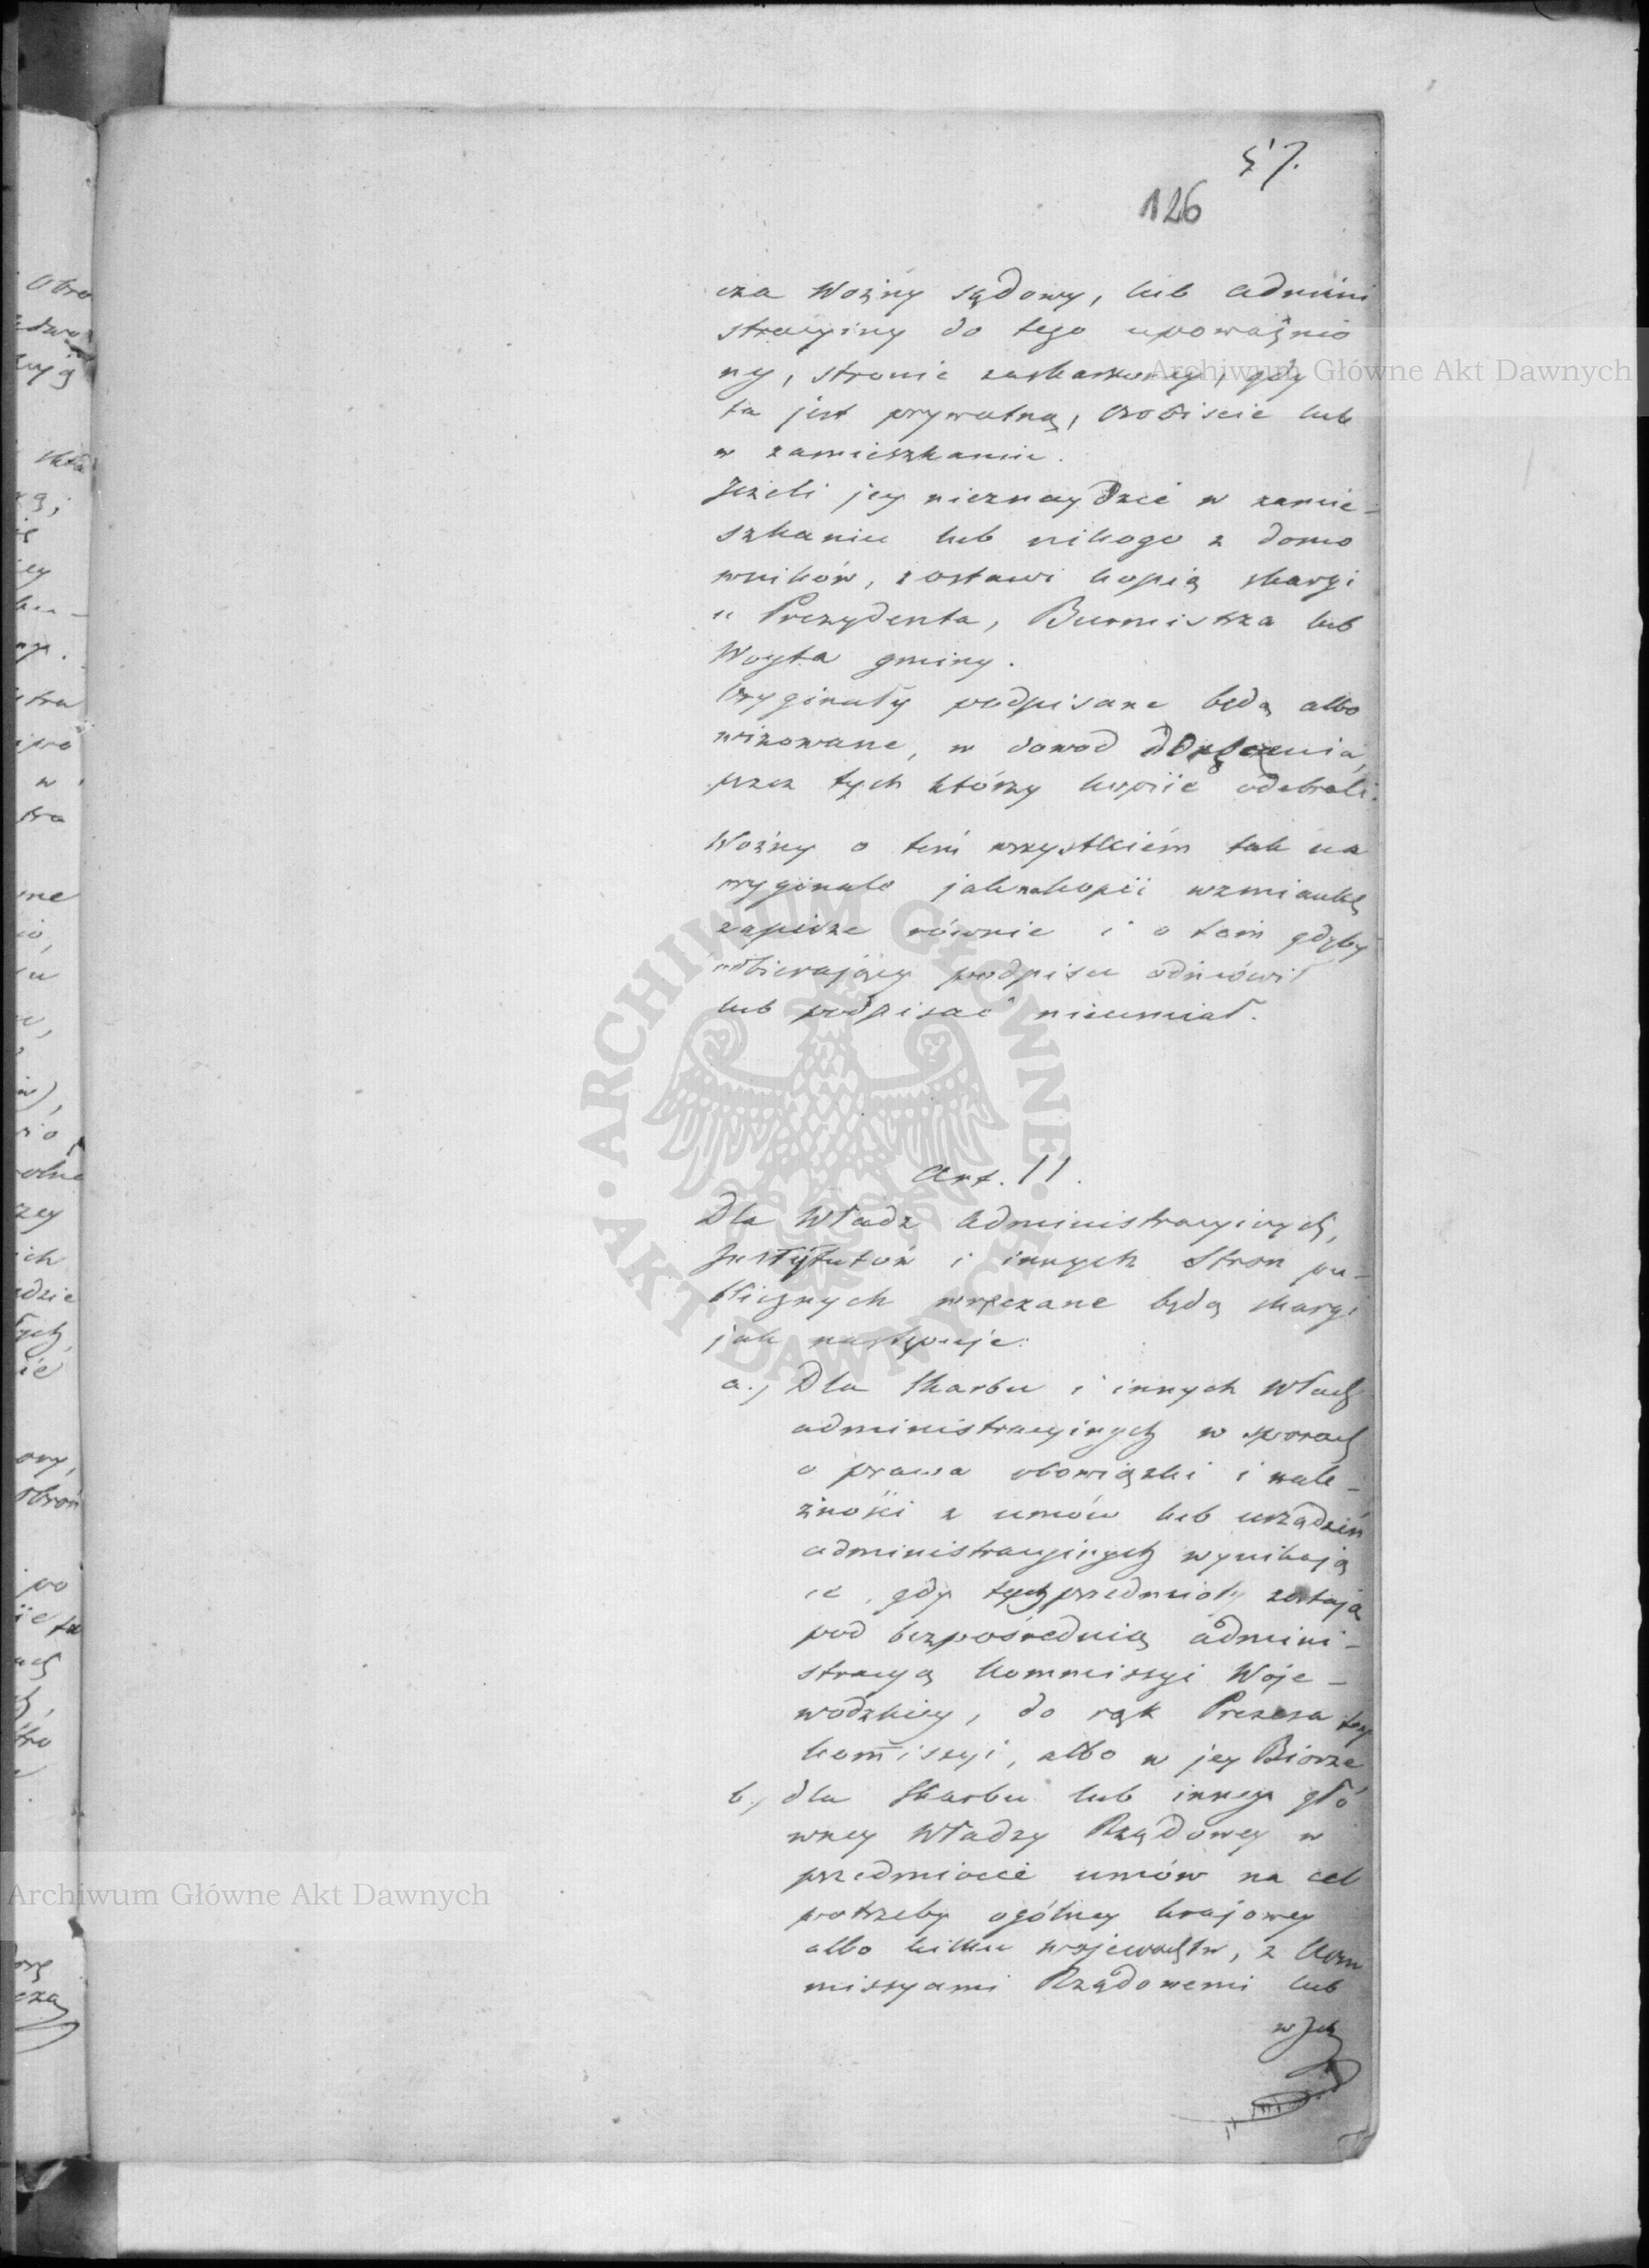 57.
126
cza Woźny sądowy, lub admini
stracyiny do tego upoważnio
ny, stronie zaskarżoney, gdy
ta jest prywatną, osobiście lub
w zamieszkaniu.
Jeżeli jey nieznaydzie w zamie-
szkaniu lub nikogo z domo
wników, zostawi kopią skargi
u Prezydenta, Burmistrza lub
Woyta gminy.
Oryginały podpisane będą albo
wizowane, w dowod doręczenia,
przez tych którzy kopiie odebrali.
Woźny o tém wszystkiém tak na
oryginale jak na kopii wzmiankę
zapisze równie i o tem gdyby
odbierający podpisu odmówił
lub podpisać nieumiał.
Art. 11.
Dla Władz administracyinych,
Instytutów i innych Stron pu-
blicznych wręczane będą skargi
jak następuje:
a., Dla Skarbu i innych Władz
administracyinych w sporach
o prawa obowiązki i nale-
żności z umów lub urządzeń
administracyinych wynikają
ce, gdy tych przedmioty zostają
pod bezpośrednią admini-
stracyą Kommissyi Woje-
wodzkiey, do rąk Prezesa tey
Kommissyi, albo w jey Biórze
b., dla Skarbu lub inney głó
wney Władzy Rządowey w
przedmiocie umów na cel
potrzeby ogólney krajowey
albo kilku województw, z Kom
missyami Rządowemi lub
w Ich
ARCHIWUM GŁÓWNE AKT DAWNYCH
Archiwum Główne Akt Dawnych
Archiwum Główne Akt Dawnych